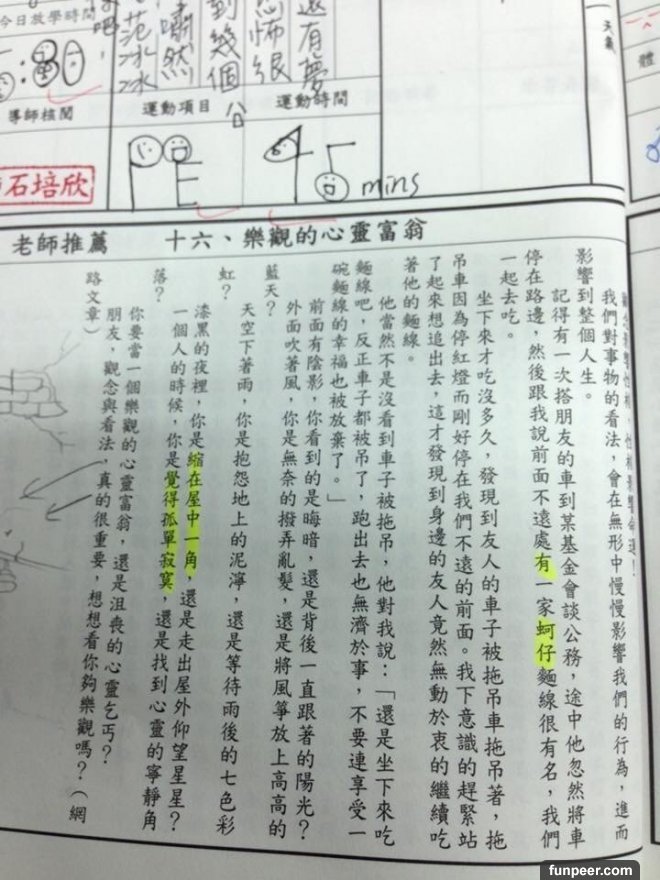 今日放學時間
天氣
體
還有夢
恐怖很
到幾個
嘯然
范冰冰
吧,
公
:30
導師核閱
運動項目
運動時間
石培欣
PE
45 mins
老師推薦
十六、樂觀的心靈富翁
我們對事物的看法,會在無形中慢慢影響我們的行為,進而
影響到整個人生。
記得有一次搭朋友的車到某基金會談公務,途中他忽然將車
停在路邊,然後跟我說前面不遠處有一家蚵仔麵線很有名,我們
一起去吃。
坐下來才吃沒多久,發現到友人的車子被拖吊車拖吊著,拖
吊車因為停紅燈而剛好停在我們不遠的前面。我下意識的趕緊站
了起來想追出去,這才發現到身邊的友人竟然無動於衷的繼續吃
著他的麵線。
他當然不是沒看到車子被拖吊,他對我說:「還是坐下來吃
麵線吧,反正車子都被吊了,跑出去也無濟於事,不要連享受一
碗麵線的幸福也被放棄了。」
前面有陰影,你看到的是晦暗,還是背後一直跟著的陽光?
外面吹著風,你是無奈的撥弄亂髮,還是將風箏放上高高的
藍天?
天空下著雨,你是抱怨地上的泥濘,還是等待雨後的七色彩
虹?
漆黑的夜裡,你是縮在屋中一角,還是走出屋外仰望星星?
一個人的時候,你是覺得孤單寂寞,還是找到心靈的寧靜角
落?
你要當一個樂觀的心靈富翁,還是沮喪的心靈乞丐?
朋友,觀念與看法,真的很重要,想想看你夠樂觀嗎?(網
路文章)
funpeer.com